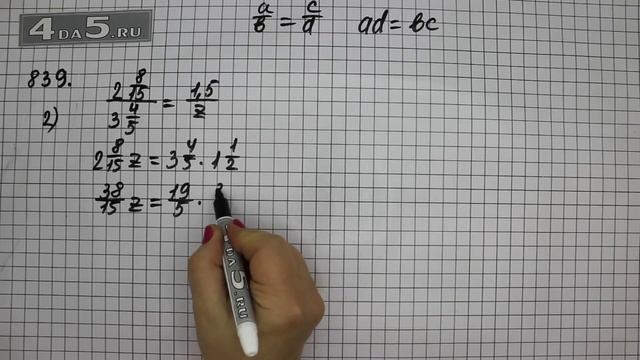 4DA5.RU
a/b = c/d ad = bc
839.
2) 2 8/15 / 3 4/5 = 1,5/z
2 8/15 z = 3 4/5 · 1 1/2
38/15 z = 19/5 ·
4DA5.RU